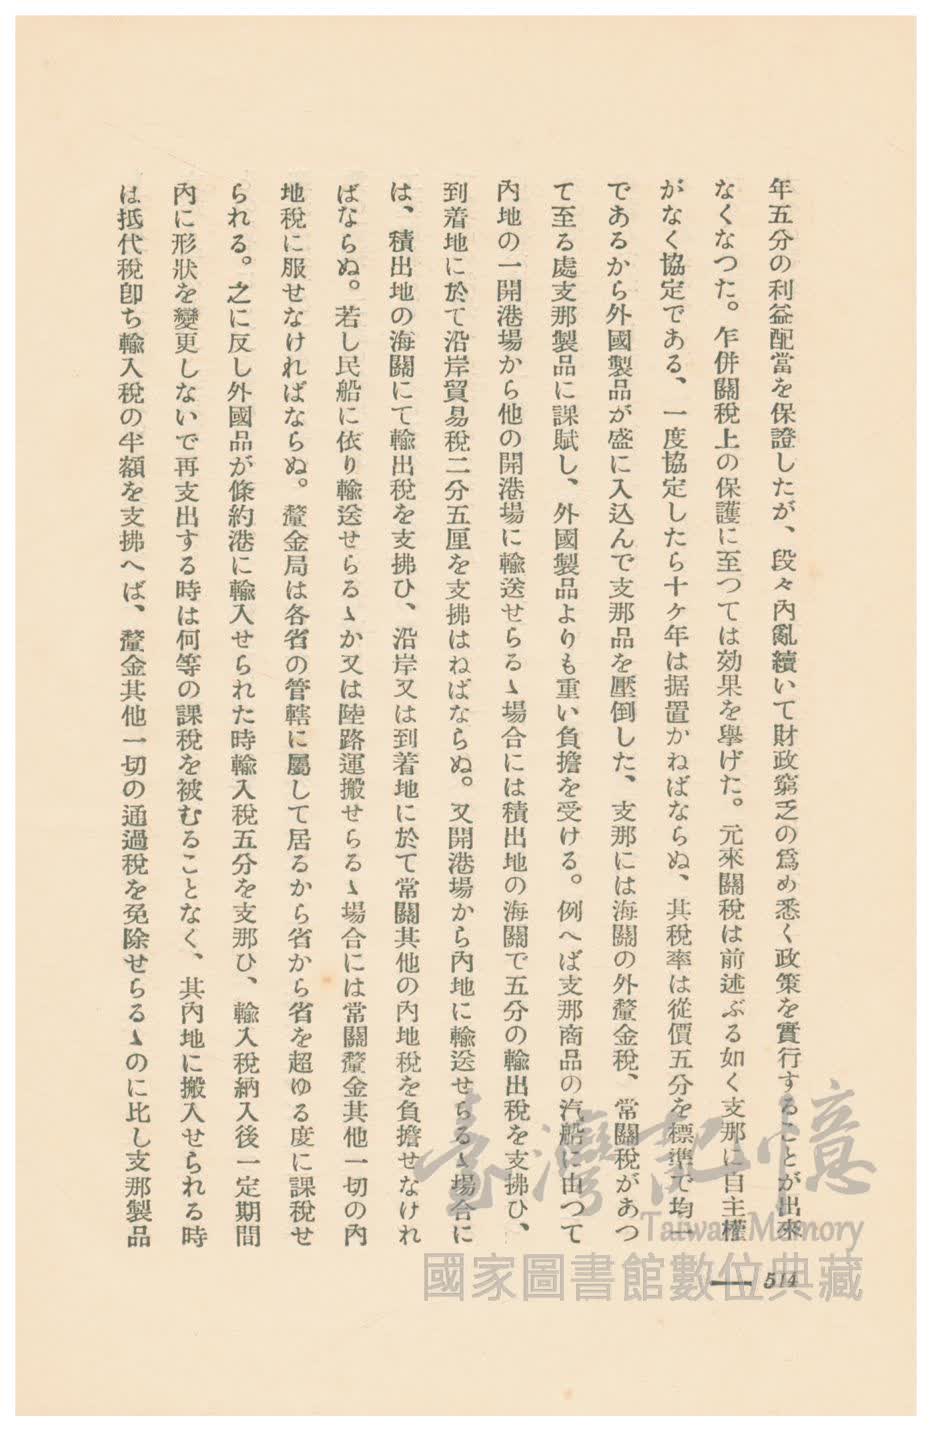 年五分の利益配當を保證したが、段々內亂續いて財政窮乏の爲め悉く政策を實行することが出來
なくなつた。乍併關稅上の保護に至つては効果を擧げた。元來關稅は前述ぶる如く支那に自主權
がなく協定である、一度協定したら十ケ年は据置かねばならぬ、其稅率は從價五分を標準で均一
であるから外國製品が盛に入込んで支那品を壓倒した、支那には海關の外釐金稅、常關稅があつ
て至る處支那製品に課賦し、外國製品よりも重い負擔を受ける。例へば支那商品の汽船に由つて
內地の一開港場から他の開港場に輸送せらるゝ場合には積出地の海關で五分の輸出稅を支拂ひ、
到着地に於て沿岸貿易稅二分五厘を支拂はねばならぬ。又開港場から內地に輸送せらるゝ場合に
は、積出地の海關にて輸出稅を支拂ひ、沿岸又は到着地に於て常關其他の內地稅を負擔せなけれ
ばならぬ。若し民船に依り輸送せらるゝか又は陸路運搬せらるゝ場合には常關釐金其他一切の內
地稅に服せなければならぬ。釐金局は各省の管轄に屬して居るから省から省を超ゆる度に課稅せ
られる。之に反し外國品が條約港に輸入せられた時輸入稅五分を支那ひ、輸入稅納入後一定期間
內に形狀を變更しないで再支出する時は何等の課稅を被むることなく、其內地に搬入せられる時
は抵代稅卽ち輸入稅の半額を支拂へば、釐金其他一切の通過稅を免除せらるゝのに比し支那製品
514
臺灣記憶
Taiwan Memory
國家圖書館數位典藏